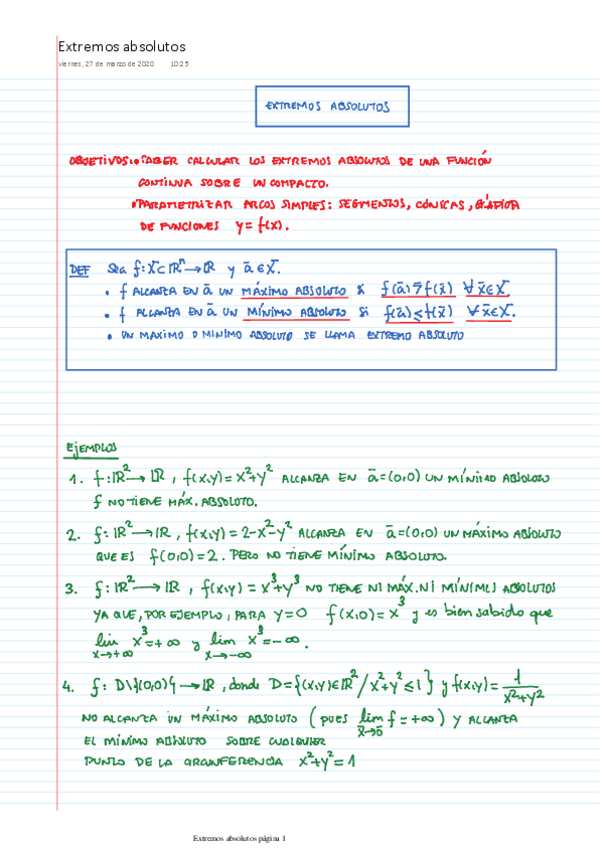 Extremos absolutos
viernes, 27 de marzo de 2020 10:25
EXTREMOS ABSOLUTOS
OBJETIVOS: • SABER CALCULAR LOS EXTREMOS ABSOLUTOS DE UNA FUNCIÓN
CONTINUA SOBRE UN COMPACTO.
• PARAMETRIZAR ARCOS SIMPLES: SEGMENTOS, CÓNICAS, GRÁFICA
DE FUNCIONES y = f(x).
DEF Sea f: X ⊂ ℝⁿ → ℝ y ā ∈ X.
• f ALCANZA EN ā UN MÁXIMO ABSOLUTO si f(ā) ≥ f(x̄) ∀ x̄ ∈ X.
• f ALCANZA EN ā UN MÍNIMO ABSOLUTO si f(ā) ≤ f(x̄) ∀ x̄ ∈ X.
• UN MAXIMO O MINIMO ABSOLUTO SE LLAMA EXTREMO ABSOLUTO
EJEMPLOS
1. f: ℝ² → ℝ, f(x,y) = x²+y² ALCANZA EN ā = (0,0) UN MÍNIMO ABSOLUTO
f NO TIENE MÁX. ABSOLUTO.
2. f: ℝ² → ℝ, f(x,y) = 2-x²-y² ALCANZA EN ā = (0,0) UN MÁXIMO ABSOLUTO
QUE ES f(0,0) = 2. PERO NO TIENE MÍNIMO ABSOLUTO.
3. f: ℝ² → ℝ, f(x,y) = x³+y³ NO TIENE NI MÁX. NI MÍNIMOS ABSOLUTOS
YA QUE, POR EJEMPLO, PARA y=0 f(x,0) = x³ y es bien sabido que
lim x→+∞ x³ = +∞ y lim x→-∞ x³ = -∞.
4. f: D\{(0,0)} → ℝ, donde D = {(x,y) ∈ ℝ² / x²+y² ≤ 1} y f(x,y) = 1/(x²+y²)
NO ALCANZA UN MÁXIMO ABSOLUTO (pues lim x̄→0̄ f = +∞) Y ALCANZA
EL MÍNIMO ABSOLUTO SOBRE CUALQUIER
PUNTO DE LA CIRCUNFERENCIA x²+y² = 1
Extremos absolutos página 1